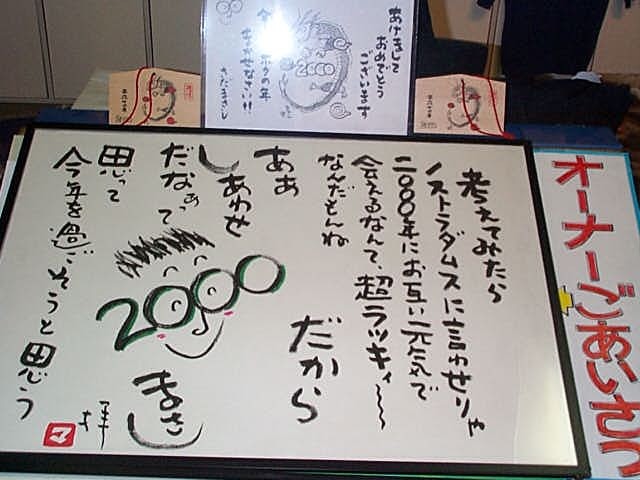 あけまして
おめでとう
ございます
今
年
まかせなさい!!
さだまさし
2000
オーナーごあいさつ
考えてみたら
ノストラダムスに言わせりゃ
二〇〇〇年にお互い元気で
会えるなんて、超ラッキィ〜〜
なんだもんね
だから
あぁ
しあわせ
だなぁって
思って
今年を過ごそうと思う
2000
まさし
拝